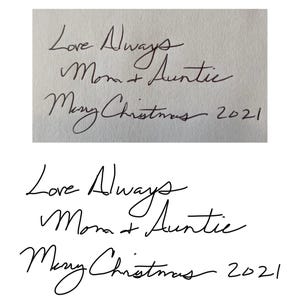 Love Always
Mom & Auntie
Merry Christmas 2021
Love Always
Mom & Auntie
Merry Christmas 2021